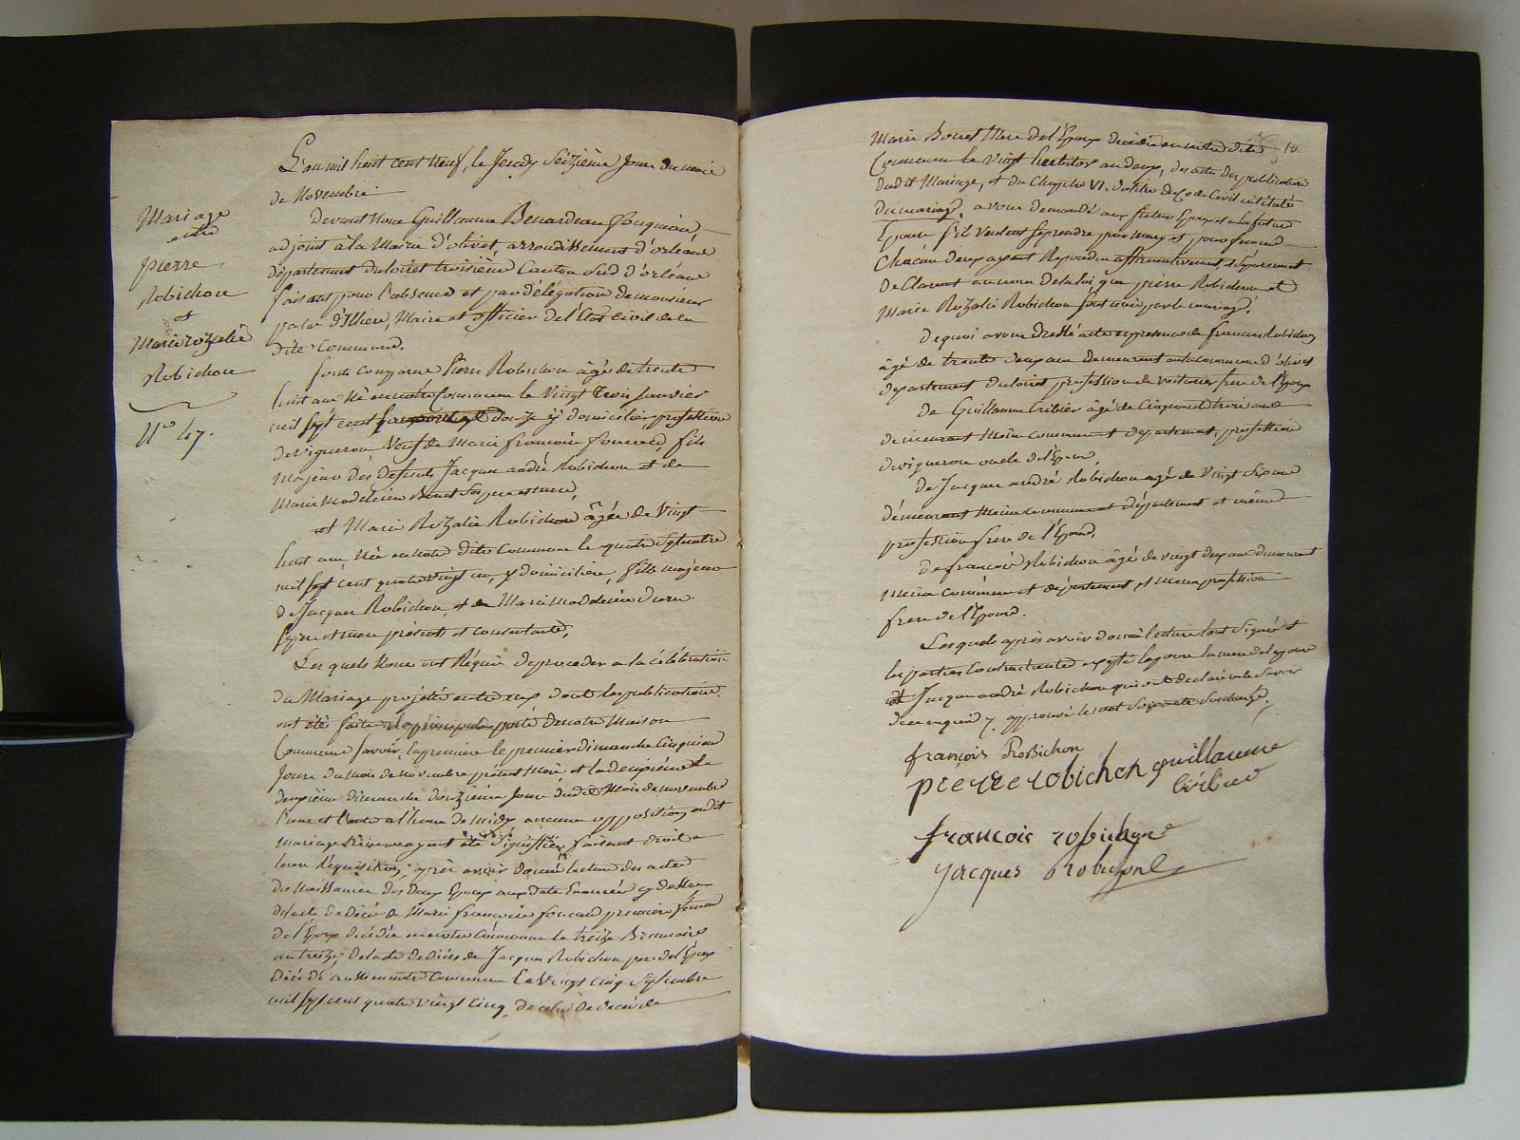 Mariage
entre
pierre
Robichon
et
Marie rozalie
Robichon
N.º 47.
L'an mil huit cent neuf, le Jeudy Seizième Jour du mois
de Novembre.
Devant Nous Guillaume Benardeau fouqueau,
adjoint à la Mairie d'olivet, arrondissement d'orléans
département du loiret troisième Canton Sud d'orléans
faisant pour l'absence et par délégation de monsieur
Maire et officier de l'Etat Civil de la
dite Commune.
Sont Comparus Pierre Robichon âgé de trente
huit ans Né en cette Commune le Vingt Trois Janvier
mil sept cent Soixante douze y domicilié, profession
de vigneron Veuf de Marie francoise foucaud, fils
majeur des defunts Jacques andré Robichon et de
Marie Madeleine Bouet Ses pere et mere,
et Marie Rozalie Robichon âgée de Vingt
huit ans Née en notre dite Commune le quatre
mil sept cent quatre vingt un, y domiciliée, fille majeure
de Jacques Robichon, et de Marie Madeleine
Ses pere et mere présents et consentants,
Les quels Nous ont Réquis de proceder a la célébration
du Mariage projetté entre eux dont les publications
ont été faites de la principale porte de notre Maison
Commune Savoir, la premiere le premier dimanche Cinquième
Jour du mois de novembre présent mois et la deuxième le
deuxième dimanche douzième Jour dudit Mois de novembre
l'une et l'autre a l'heure de midy aucune opposition audit
mariage Ne nous ayant été Signifiée faisant droit a
leur Réquisition, après avoir donné lecture des actes
de Naissance des deux Epoux aux dates Enoncées cy dessus
de l'acte de décès de Marie francoise foucaud premiere femme
de l'Epoux décédée en notre Commune le treize Brumaire
an treize, de l'acte de décès de Jacques Robichon pere de l'Epoux
décédé en notre Commune le Vingt cinq Septembre
mil sept cent quatre vingt Cinq, de celui de décès de
Marie Bouet Mere de l'Epoux décédée en notre dite
Commune le Vingt an deux, des actes des publication
dudit Mariage, et du Chapitre VI. du titre du Code Civil intitulé
du mariage, avons demandé aux futurs Epoux et a la future
Epouse s'ils veulent se prendre pour mary et pour femme
Chacun d'eux ayant Répondu affirmativement et Séparement
Declarons au nom de la loi, que pierre Robichon et
Marie Rozalie Robichon Sont unis par le mariage.
De quoi avons Dressé acte en presence de francois Robichon
âgé de trente deux ans Demeurant en la commune d'olivet
département du loiret profession de voiturier frere de l'Epoux
De Guillaume Cribier âgé de Cinquante trois ans
demeurant Même commune et departement, profession
de vigneron oncle de l'Epoux,
De Jacques andré Robichon agé de Vingt Six ans
démeurant Même commune et département et même
profession frere de l'Epouse,
De francois Robichon âgé de vingt deux ans demeurant
Même Commune et département, et même profession
frere de l'Epouse.
Lesquels après avoir donné lecture Sont Signé et
les parties Contractantes excepté l'epouse la mere de l'epouse
et Jacques andré Robichon qui ont declaré ne le Savoir
de ce enquis approuvé le mot
françois Robichon
pierre robichon guillaume
Cribier
francois robichon
Jacques Robichon